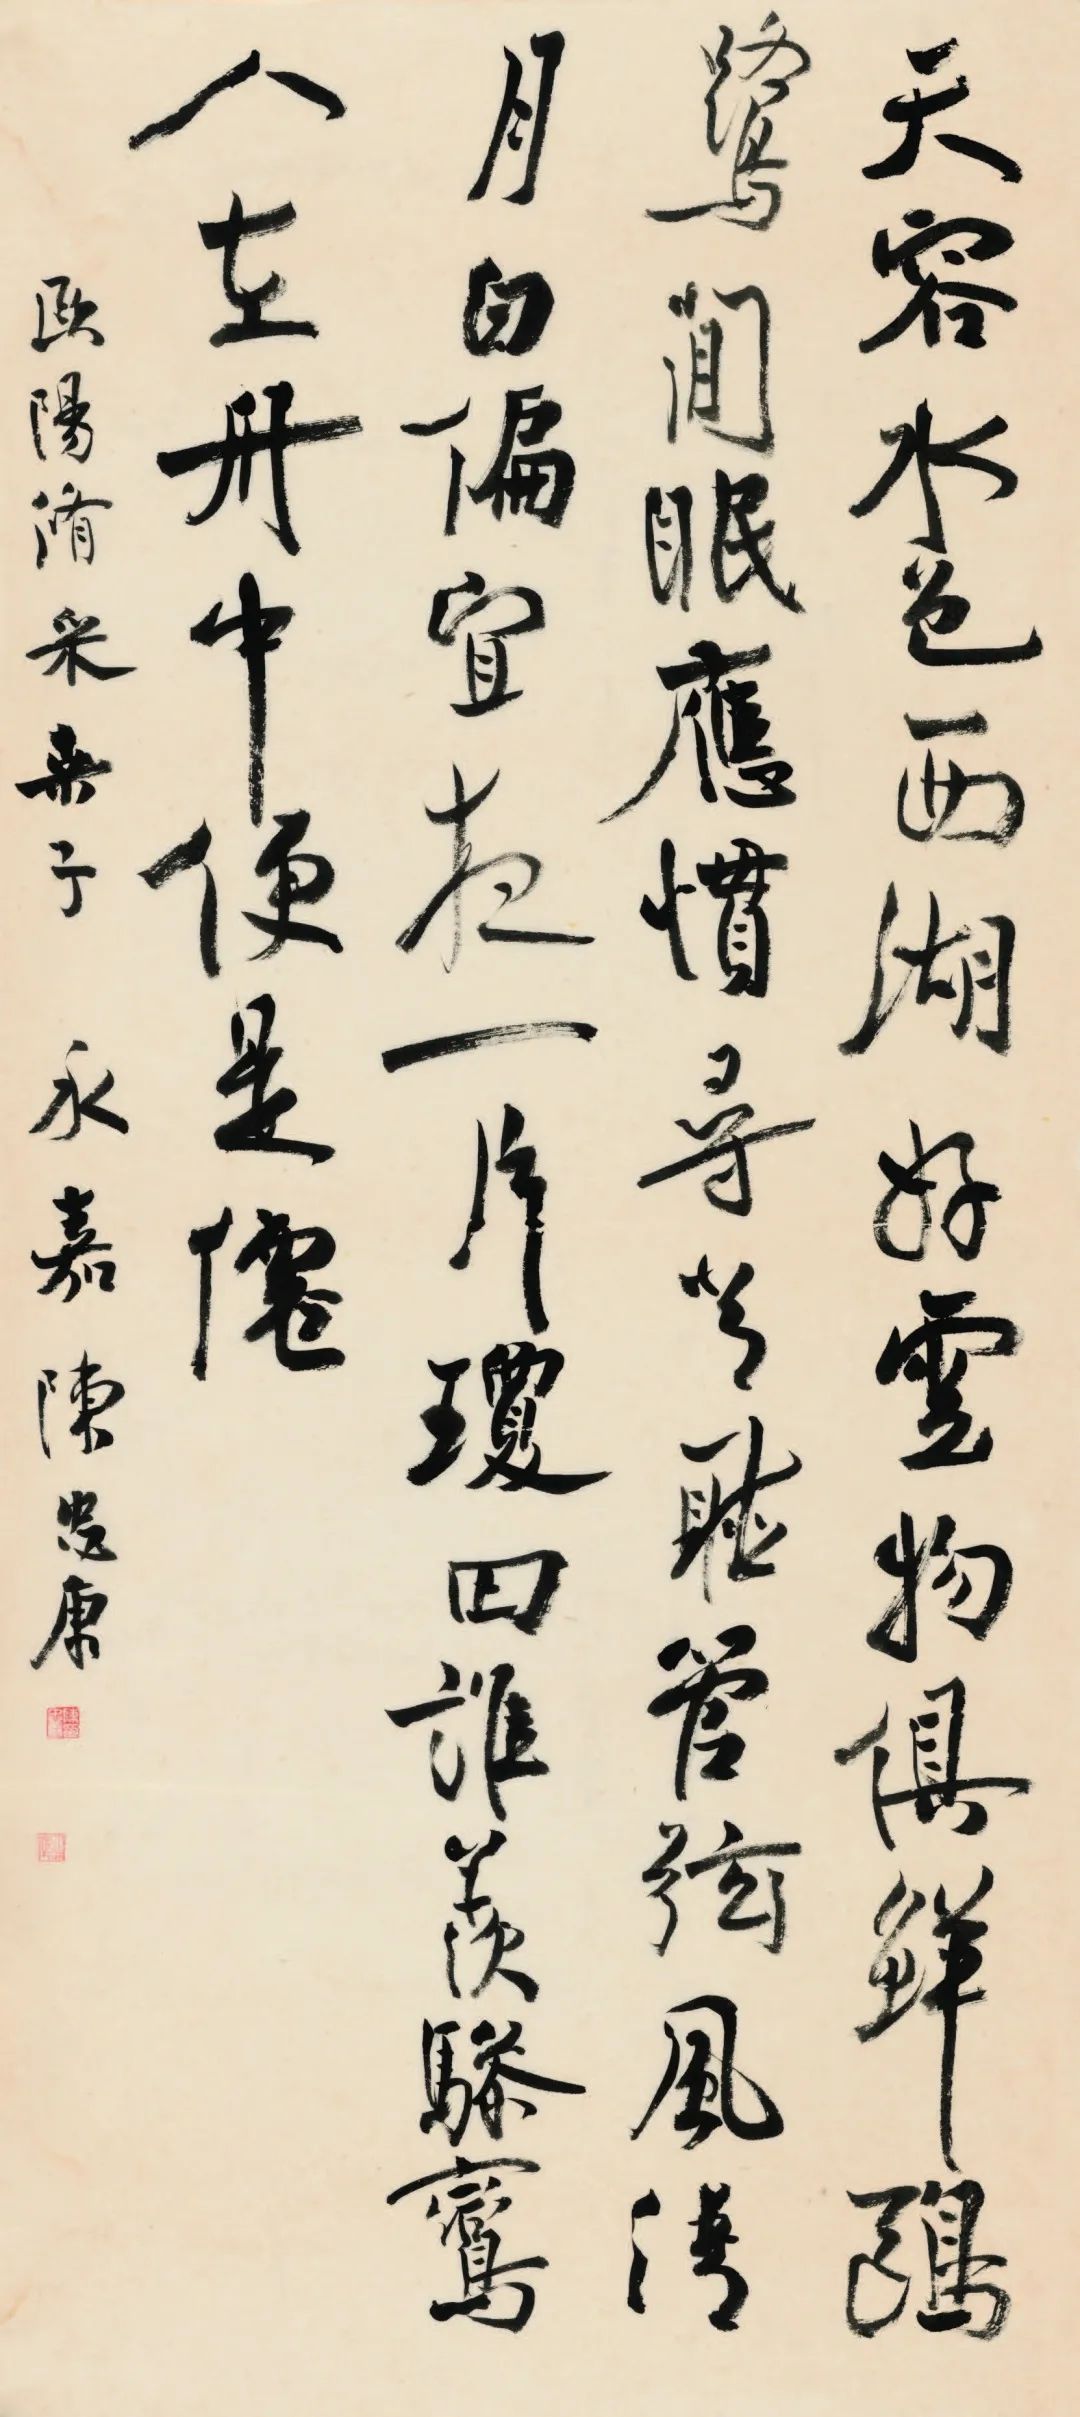 天容水色西湖好雲物俱鮮鷗
鷺閒眠應慣尋常聽管弦風清
月白偏宜夜一片瓊田誰羨驂鸞
人在舟中便是僊
歐陽脩采桑子 永嘉陳忠康